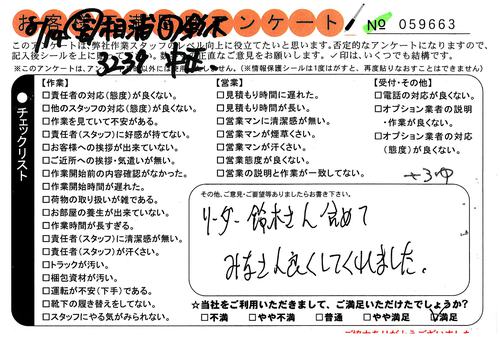 アンケート！
No 059663
このアンケートは、弊社作業スタッフのレベル向上に役立てたいと思います。否定的なアンケートになりますので、
記入後シールを上に
正直なご意見をお願いします。✓印は、いくつでも結構です。
32-39
チェックリスト
【作業】
□責任者の対応(態度)が良くない。
□他のスタッフの対応(態度)が良くない。
□作業を見ていて不安がある。
□責任者(スタッフ)に好感が持てない。
□お客様への挨拶が出来ていない。
□ご近所への挨拶・気遣いが無い。
□作業開始前の内容確認がなかった。
□作業開始時間が遅れた。
□荷物の取り扱いが雑である。
□お部屋の養生が出来ていない。
□作業時間が長すぎる。
□責任者(スタッフ)に清潔感が無い。
□責任者(スタッフ)が汗くさい。
□トラックが汚い。
□梱包資材が汚い。
□運転が不安(下手)である。
□靴下の履き替えをしてない。
□スタッフにやる気がみられない。
【営業】
□見積もり時間に遅れた。
□見積もり時間が長い。
□営業マンに清潔感が無い。
□営業マンが煙草くさい。
□営業マンが汗くさい。
□営業態度が良くない。
□営業の説明と作業が一致してない。
【受付・その他】
□電話の対応が良くない。
□オプション業者の説明
・作業が良くない。
□オプション業者の対応
(態度)が良くない。
その他、ご意見・ご要望等ありましたらお書き下さい。
リーダー鈴木さん含めて
みなさん良くしてくれました。
☆当社をご利用いただきまして、ご満足いただけたでしょうか？
□不満 □やや不満 □普通 □やや満足 ☑満足